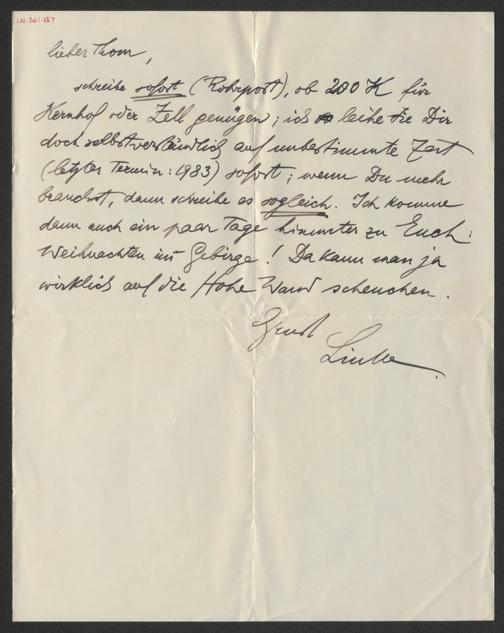 I.N. 201.527
lieber Thom,
schreibe sofort (Rohrpost), ob 200 K für
Kernhof oder Zell genügen; ich leihe sie Dir
doch selbstverständlich auf unbestimmte Zeit
(letzter Termin: 1983) sofort; wenn Du mehr
brauchst, dann schreibe es sogleich. Ich komme
dann auch ein paar Tage hinunter zu Euch:
Weihnachten im Gebirge! Da kann man ja
wirklich auf die Hohe Wand scheuchen.
Ernst